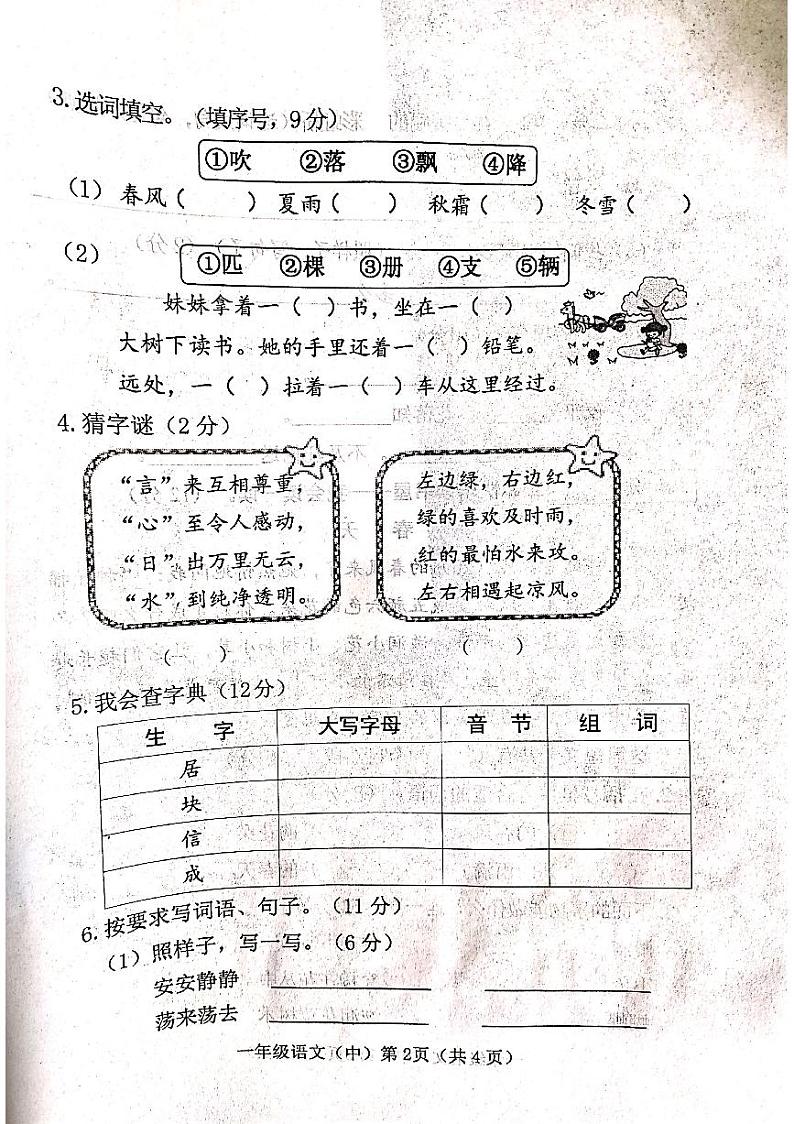 3.选词填空。（填序号，9分）
①吹 ②落 ③飘 ④降
（1）春风（ ） 夏雨（ ） 秋霜（ ） 冬雪（ ）
（2）
①匹 ②棵 ③册 ④支 ⑤辆
妹妹拿着一（ ）书，坐在一（ ）
大树下读书。她的手里还着一（ ）铅笔。
远处，一（ ）拉着一（ ）车从这里经过。
4.猜字谜（2分）
“言”来互相尊重，
“心”至令人感动，
“日”出万里无云，
“水”到纯净透明。
（ ）
左边绿，右边红，
绿的喜欢及时雨，
红的最怕水来攻。
左右相遇起凉风。
（ ）
5.我会查字典（12分）
生 字 大写字母 音 节 组 词
居
块
信
成
6.按要求写词语、句子。（11分）
（1）照样子，写一写。（6分）
安安静静
荡来荡去
一年级语文（中）第2页（共4页）